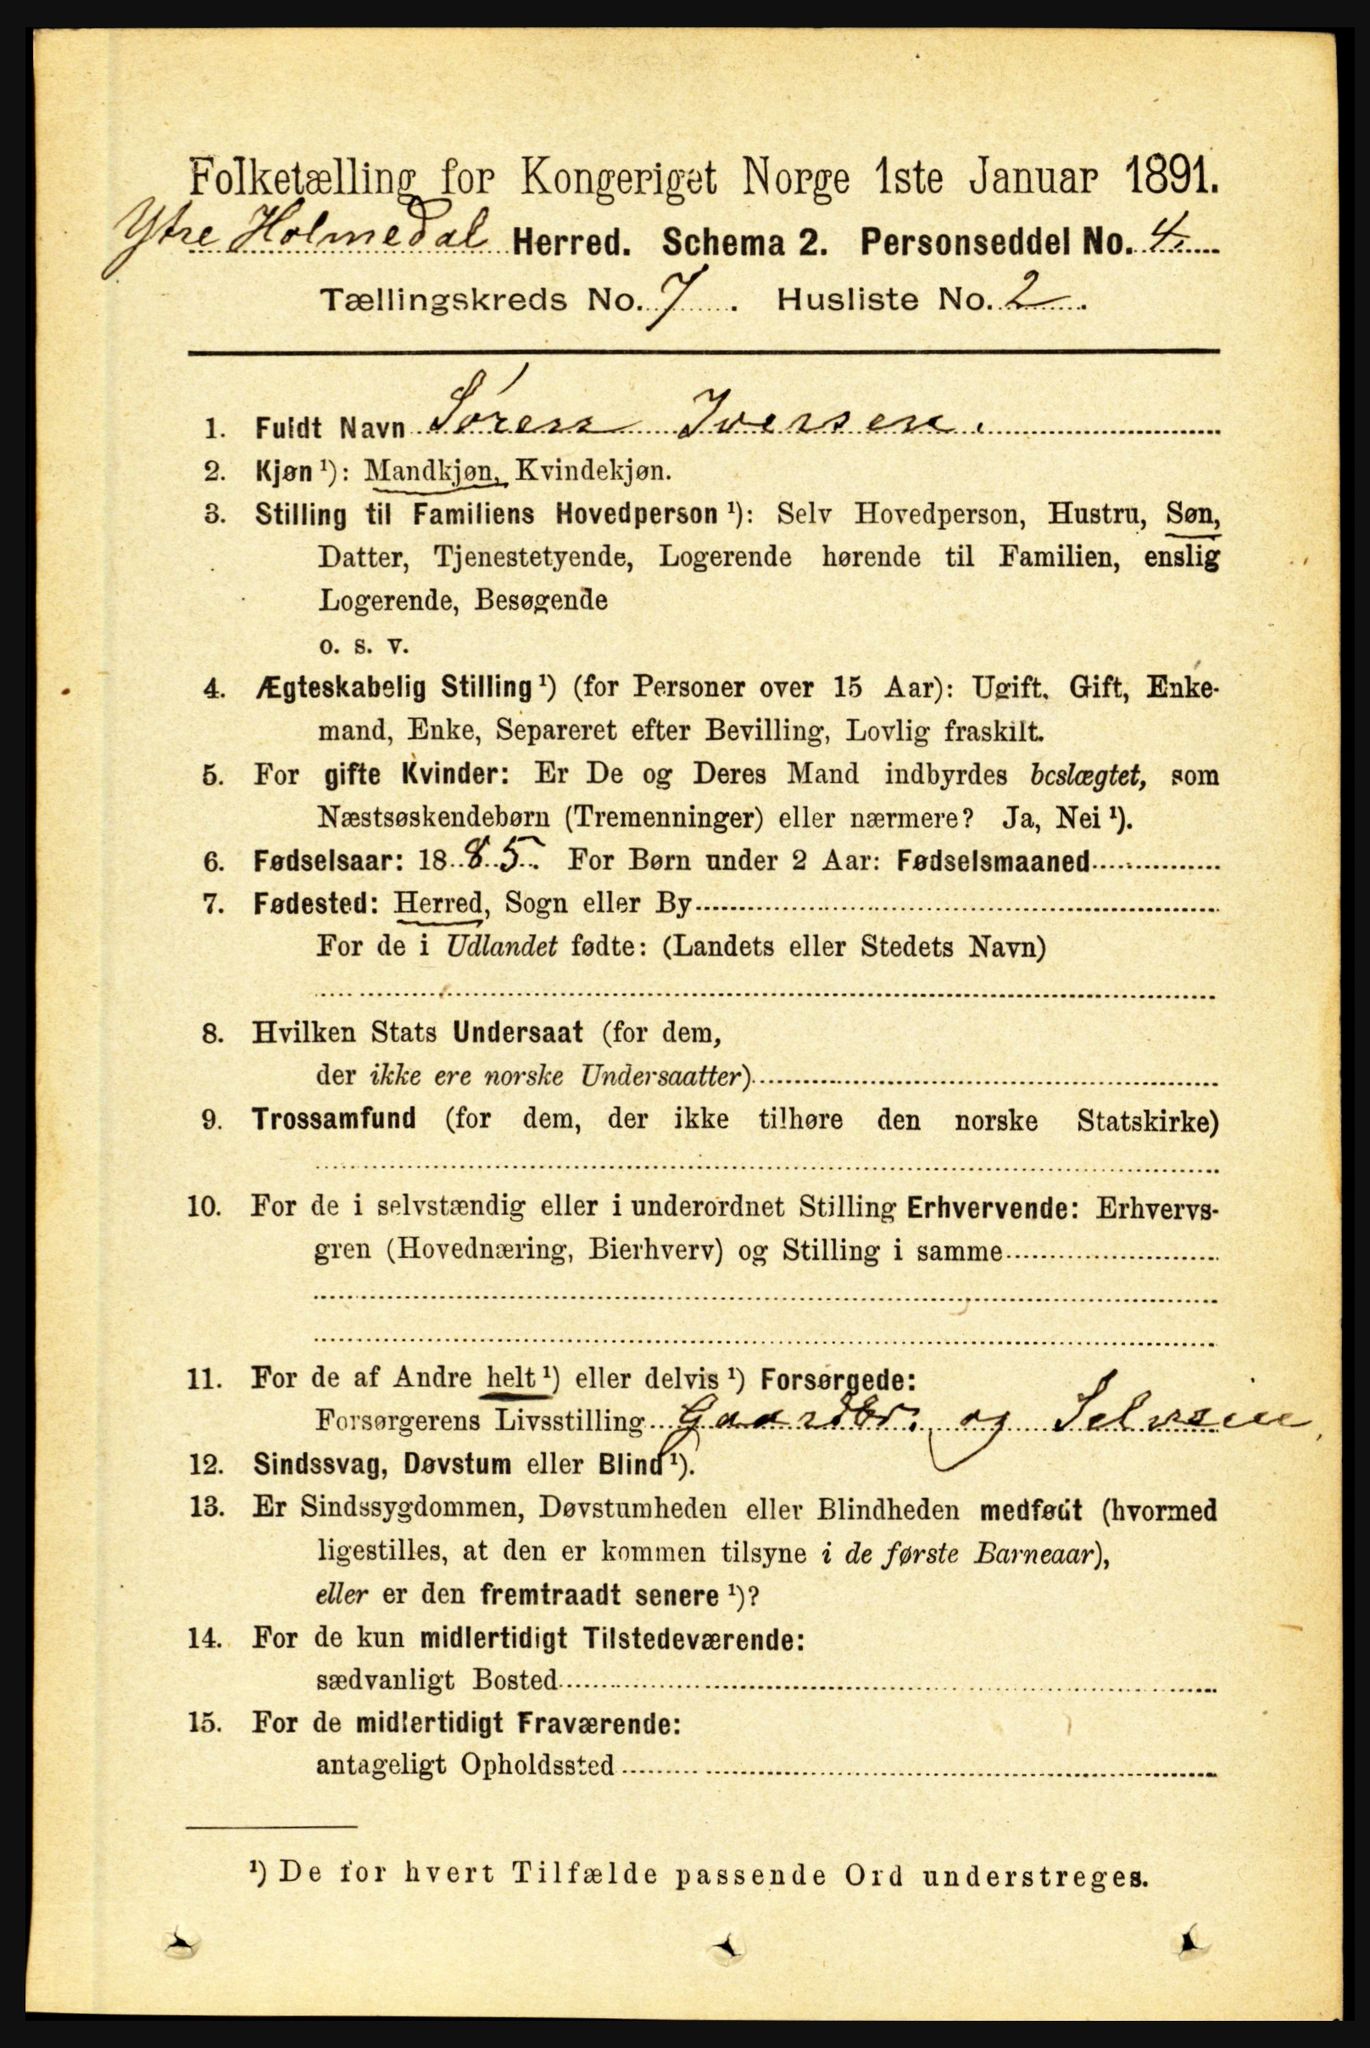 Folketælling for Kongeriget Norge 1ste Januar 1891.
Ytre Holmedal Herred. Schema 2. Personseddel No. 4.
Tællingskreds No. 7. Husliste No. 2.
1. Fuldt Navn Sören Iversen.
2. Kjøn ¹): Mandkjøn, Kvindekjøn.
3. Stilling til Familiens Hovedperson ¹): Selv Hovedperson, Hustru, Søn,
Datter, Tjenestetyende, Logerende hørende til Familien, enslig
Logerende, Besøgende
o. s. v.
4. Ægteskabelig Stilling ¹) (for Personer over 15 Aar): Ugift, Gift, Enke-
mand, Enke, Separeret efter Bevilling, Lovlig fraskilt.
5. For gifte Kvinder: Er De og Deres Mand indbyrdes beslægtet, som
Næstsøskendebørn (Tremenninger) eller nærmere? Ja, Nei ¹).
6. Fødselsaar: 1885. For Børn under 2 Aar: Fødselsmaaned
7. Fødested: Herred, Sogn eller By
For de i Udlandet fødte: (Landets eller Stedets Navn)
8. Hvilken Stats Undersaat (for dem,
der ikke ere norske Undersaatter)
9. Trossamfund (for dem, der ikke tilhøre den norske Statskirke)
10. For de i selvstændig eller i underordnet Stilling Erhvervende: Erhvervs-
gren (Hovednæring, Bierhverv) og Stilling i samme
11. For de af Andre helt ¹) eller delvis ¹) Forsørgede:
Forsørgerens Livsstilling Gaardbr. og Selveier
12. Sindssvag, Døvstum eller Blind ¹).
13. Er Sindssygdommen, Døvstumheden eller Blindheden medfødt (hvormed
ligestilles, at den er kommen tilsyne i de første Barneaar),
eller er den fremtraadt senere ¹)?
14. For de kun midlertidigt Tilstedeværende:
sædvanligt Bosted
15. For de midlertidigt Fraværende:
antageligt Opholdssted
¹) De for hvert Tilfælde passende Ord understreges.